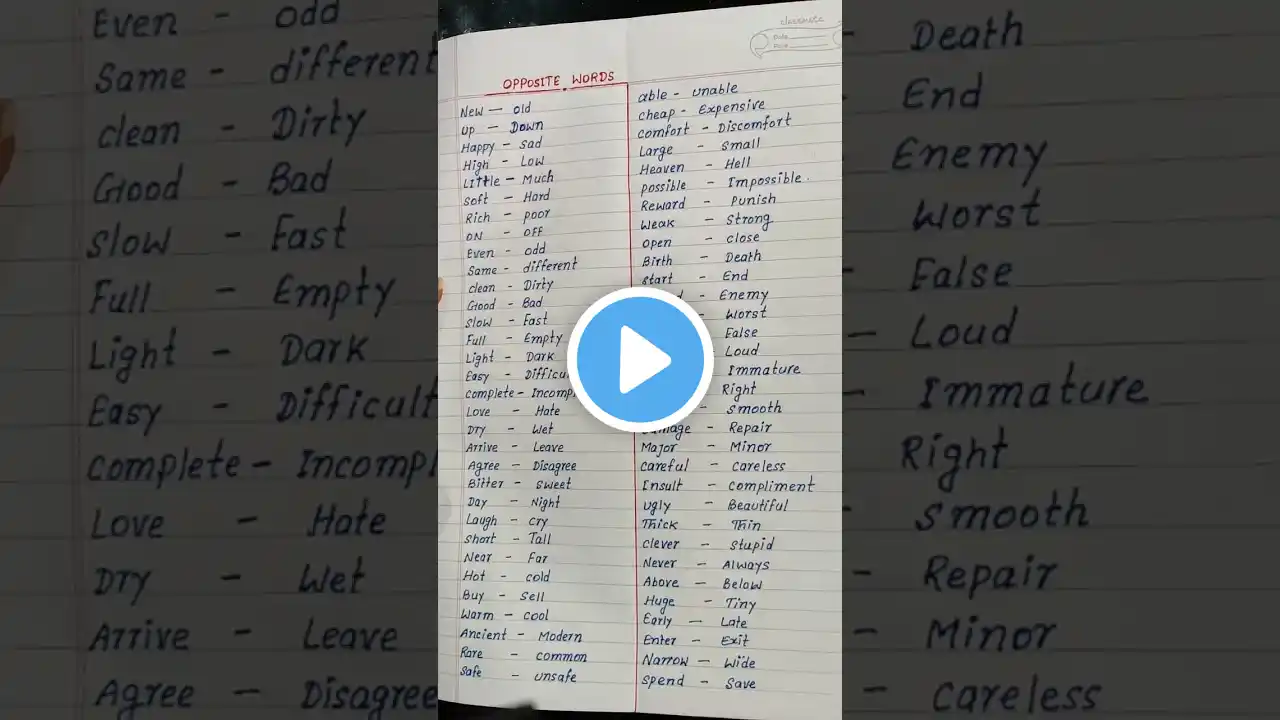 classmate
Date
Page
OPPOSITE WORDS
New — old
Up — Down
Happy - sad
High - Low
Little - Much
Soft - Hard
Rich - poor
ON - OFF
Even - odd
Same - different
clean - Dirty
Good - Bad
Slow - Fast
Full - Empty
Light - Dark
Easy - Difficult
complete - Incompl
Love - Hate
Dry - Wet
Arrive - Leave
Agree - Disagree
Bitter - sweet
Day - Night
Laugh - cry
Short - Tall
Near - Far
Hot - cold
Buy - sell
Warm - cool
Ancient - Modern
Rare - common
Safe - unsafe
able - unable
cheap - Expensive
comfort - Discomfort
Large - Small
Heaven - Hell
possible - Impossible.
Reward - Punish
Weak - Strong
open - close
Birth - Death
start - End
- Enemy
- Worst
False
Loud
Immature
Right
- Smooth
Damage - Repair
Major - Minor
careful - careless
Insult - compliment
ugly - Beautiful
Thick - Thin
clever - Stupid
Never - Always
Above - Below
Huge - Tiny
Early — Late
Enter - Exit
Narrow — Wide
spend - Save
Even - odd
Same - different
clean - Dirty
Good - Bad
Slow - Fast
Full - Empty
Light - Dark
Easy - Difficult
complete - Incompl
Love - Hate
Dry - Wet
Arrive - Leave
Agree - Disagree
Death
End
Enemy
Worst
False
- Loud
- Immature
Right
Smooth
- Repair
- Minor
- careless